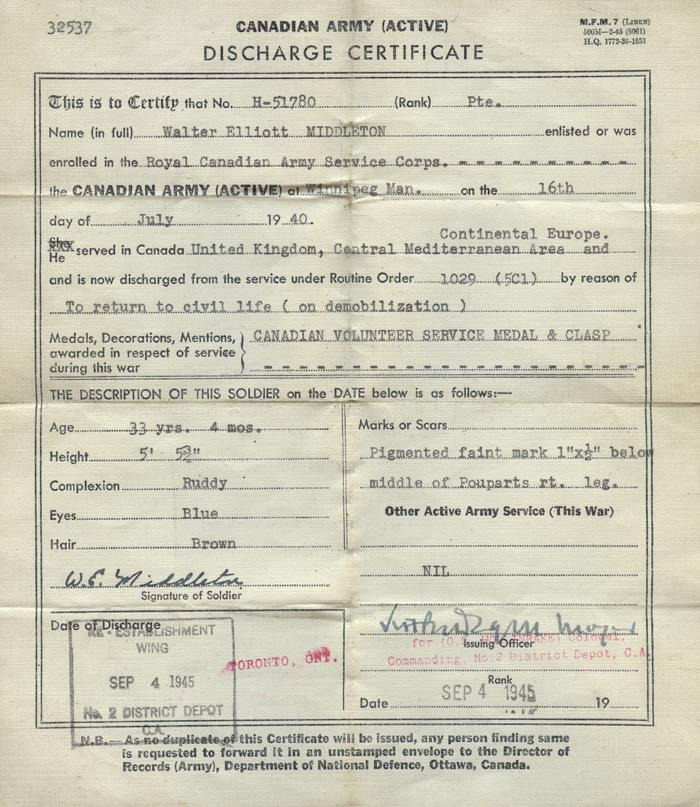 32537
CANADIAN ARMY (ACTIVE)
M.F.M. 7 (LINEN)
500M—2-45 (6061)
H.Q. 1772-39-1653
DISCHARGE CERTIFICATE
This is to Certify that No. H-51780 (Rank) Pte.
Name (in full) Walter Elliott MIDDLETON enlisted or was
enrolled in the Royal Canadian Army Service Corps.
the CANADIAN ARMY (ACTIVE) at Winnipeg Man. on the 16th
day of July 19 40.
Continental Europe.
She
He served in Canada United Kingdom, Central Mediterranean Area and
and is now discharged from the service under Routine Order 1029 (5C1) by reason of
To return to civil life ( on demobilization )
Medals, Decorations, Mentions, CANADIAN VOLUNTEER SERVICE MEDAL & CLASP
awarded in respect of service
during this war
THE DESCRIPTION OF THIS SOLDIER on the DATE below is as follows:—
Age 33 yrs. 4 mos.
Height 5'
Complexion Ruddy
Eyes Blue
Hair Brown
W.E. Middleton
Signature of Soldier
Marks or Scars
Pigmented faint mark 1"x½" below
middle of Pouparts rt. leg.
Other Active Army Service (This War)
NIL
Date of Discharge
RE-ESTABLISHMENT
WING
SEP 4 1945
No. 2 DISTRICT DEPOT
C.A.
TORONTO, ONT.
Major
Issuing Officer
for
Commanding, No.2 District Depot, C.A.
Rank
Date SEP 4 1945 19
N.B.—As no duplicate of this Certificate will be issued, any person finding same
is requested to forward it in an unstamped envelope to the Director of
Records (Army), Department of National Defence, Ottawa, Canada.